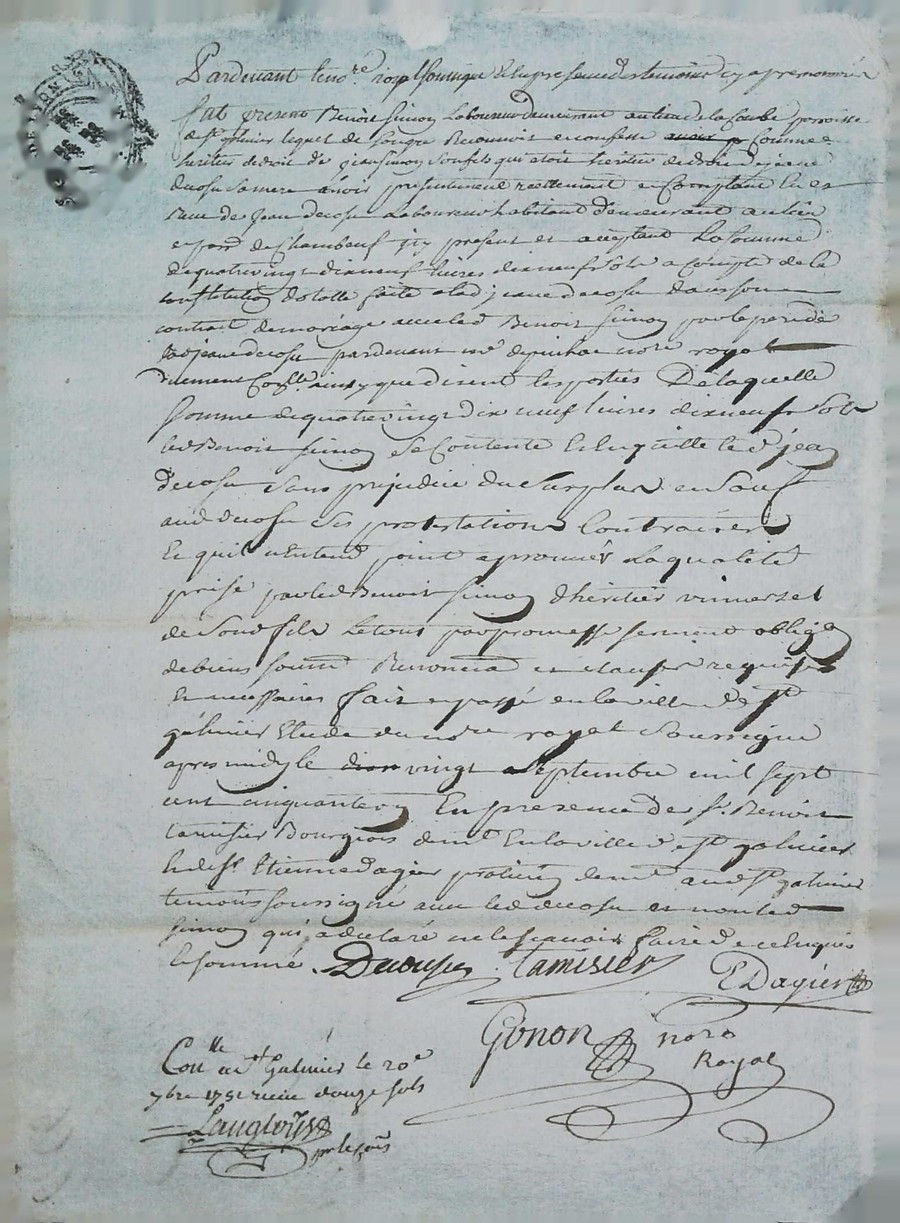 Pardevant le no.re royal soussigné et en presence des temoins cy apres nommés
fut present Benoit simon Laboureur demeurant au lieu de la Combe parroisse
de st galmier lequel de son gré Reconnoit et confesse comme
heritier de droit de jean simon son fils qui etoit heritier de droit de jeane
decosu sa mere avoir presentement reellement et Comptant
receu de jean decosu Laboureur habitant demeurant au lieu
et parr. de Chambeuf icy present et acceptant La somme
de quatre vingt dix neuf livres dix neuf sols a compte de la
constitution dotalle faite a lad. jeane decosu dans son
contrat de mariage avec led. Benoit simon par le pere de
lad. jeane decosu pardevant me depinhac nore royal
duement Con.lle ainsy que disent les parties De laquelle
somme de quatre vingt dix neuf livres dix neuf sols
led. Benoit simon se Contente et en quitte led. jean
decosu sans prejudice du surplus et sauf
aud. decosu ses protestations Contraires
Et qu'il n'entend point aprouver la qualité
prise par led. Benoit simon d'heritier universel
de sond. fils Le tout par promesse serment obligaon
de biens soumis. Renoncia. et clauses requises
Et necessaires fait et passé en la ville de st
galmier Etude du nore royal soussigné
apres midy le vingt septembre mil sept
cent cinquante un En presence de sr. Benoit
tamisier Bourgeois demt. En la ville de st galmier
et de sr. Etienne dagier praticien demt. aud. st galmier
temoins soussignés avec led. decosu et non led.
simon qui a declaré ne le scavoir faire de ce enquis
et sommé. Decousu Tamisier E Dagier
Gonon nore
Royal
Con.lle a st Galmier le 20e
7bre 1751 receu douze sols
Langlois